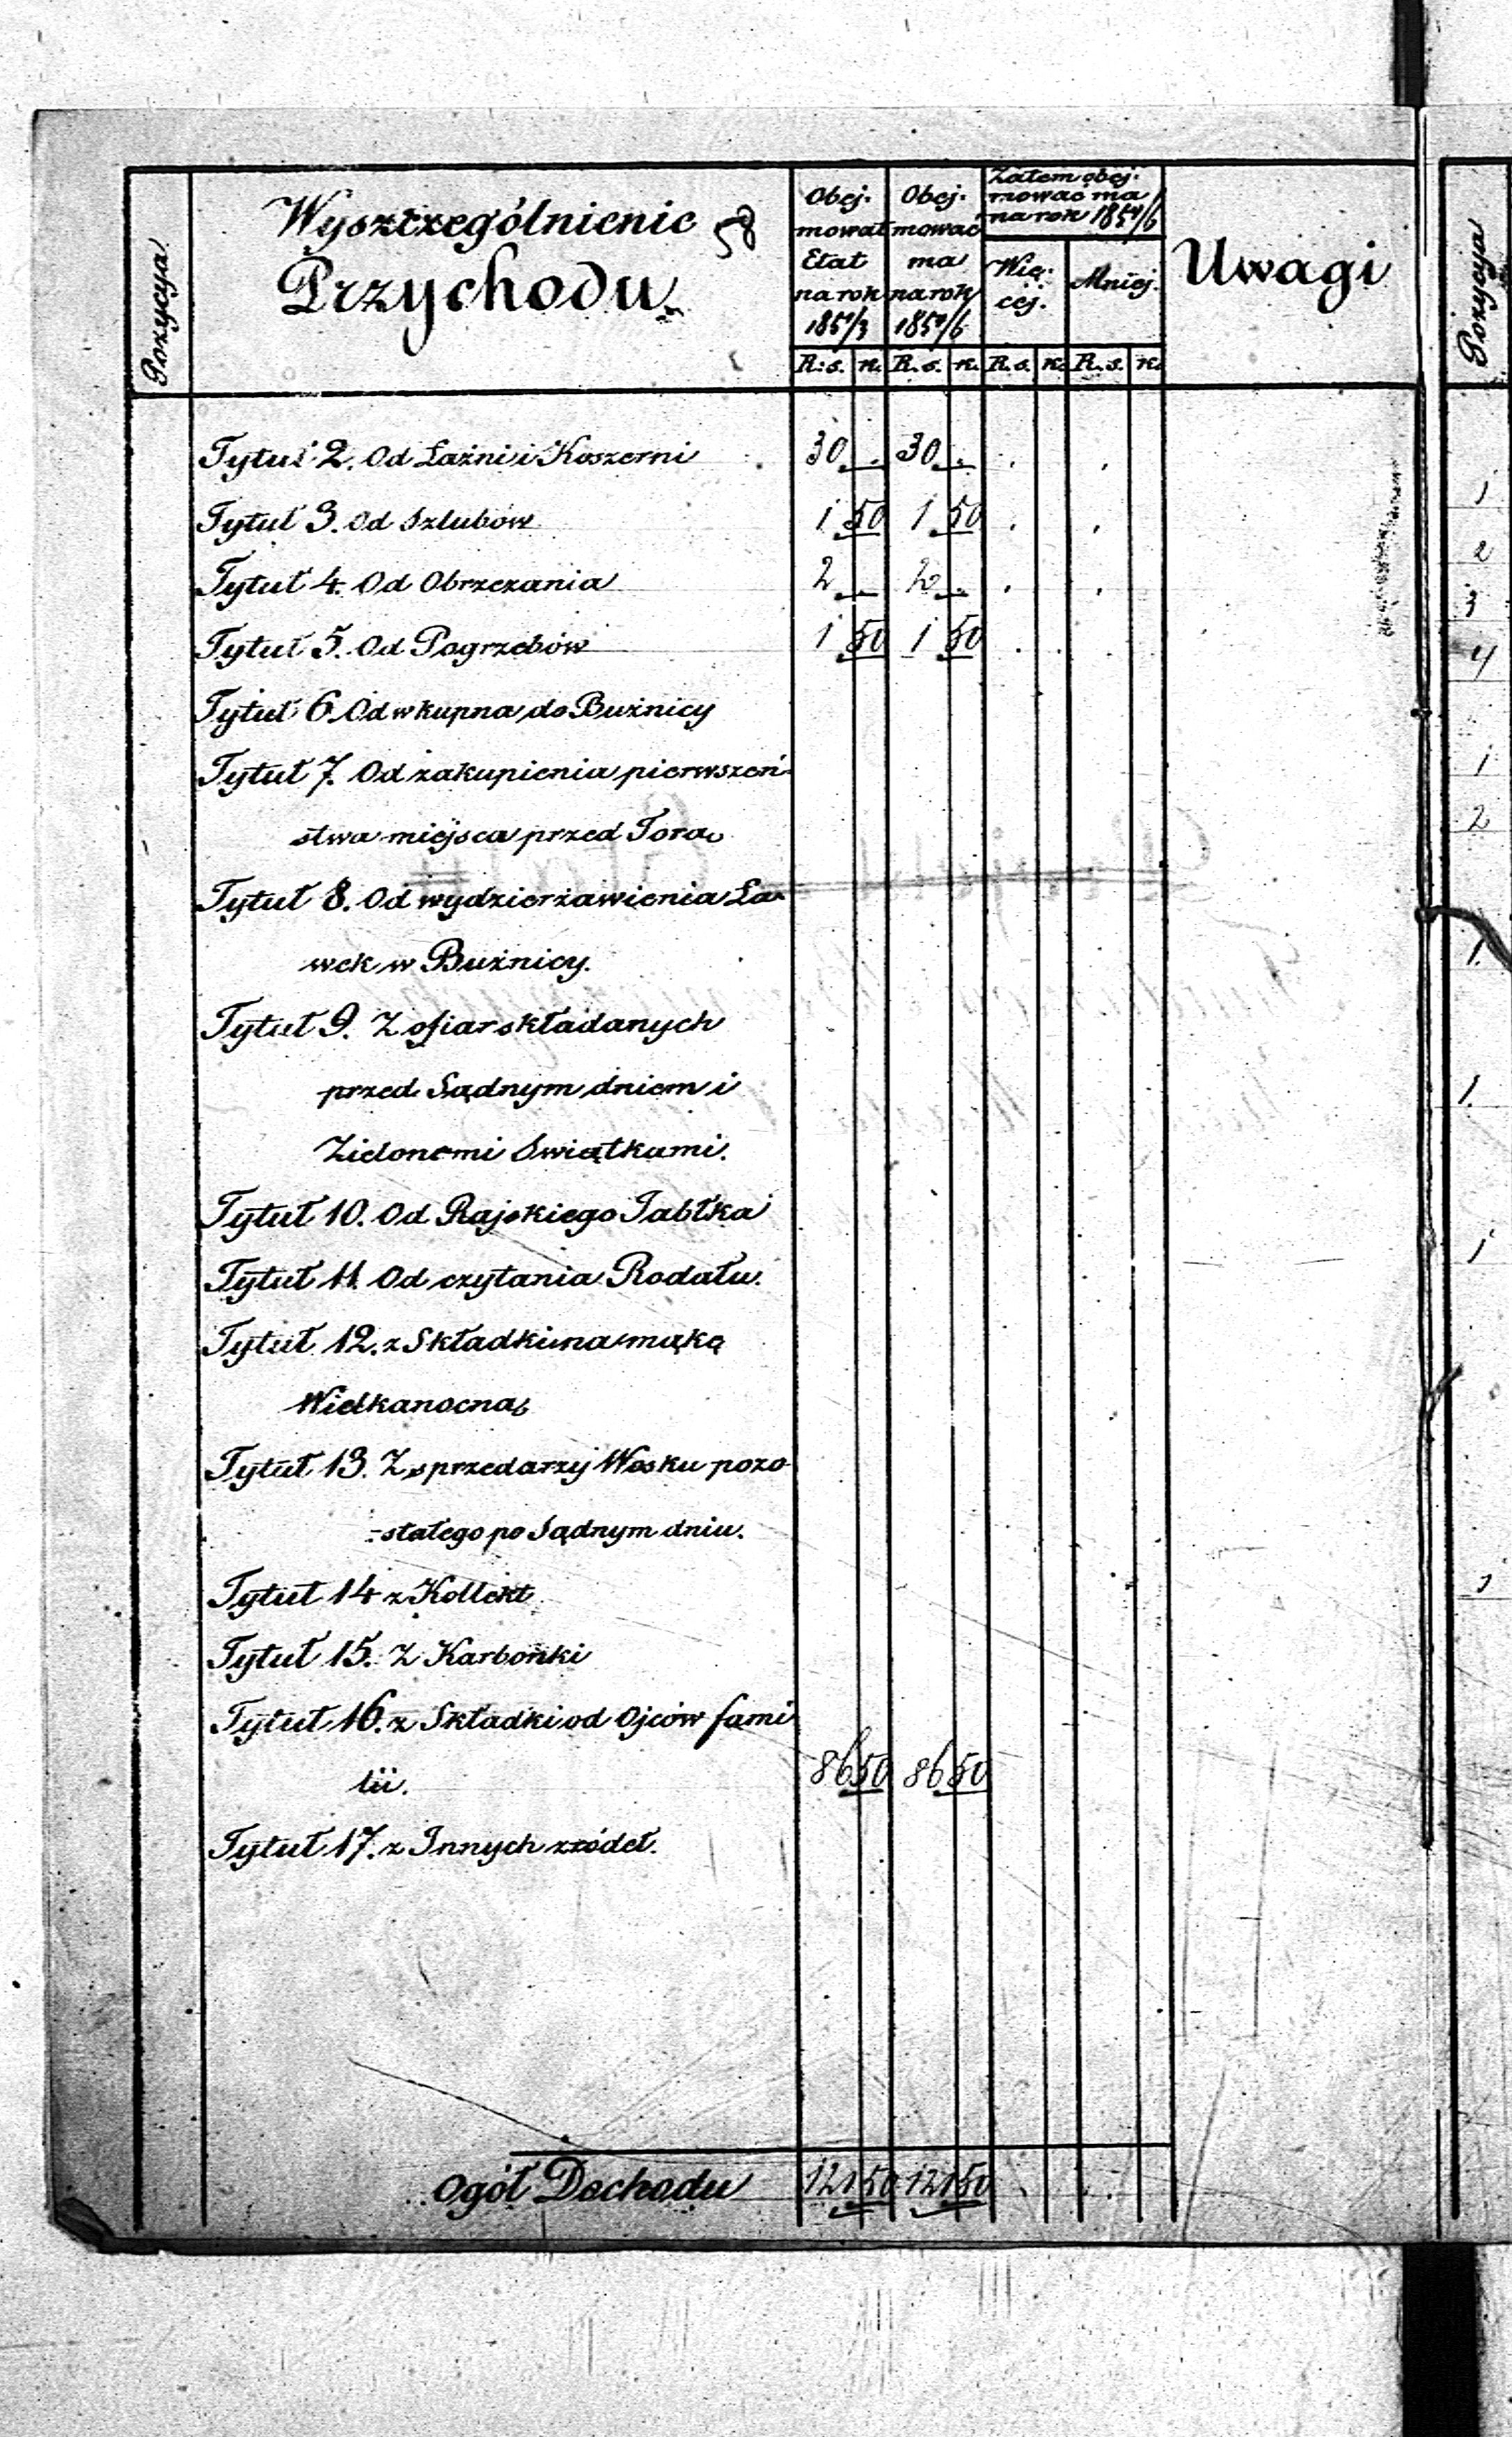 Pozycya
Wyszczególnienie
Przychodu.
58
Obej-
mował
Etat
na rok
1851/3
Obej-
mować
ma
na rok
1854/6
Zatem obej-
mować ma
na rok 1854/6
Wię-
cej.
Mniej.
Uwagi
R: s. k. R. s. k. R. s. k. R. s. k.
Tytuł 2. Od Łaźni i Koszerni 30 . 30 . . .
Tytuł 3. Od Szlubów 1 50 1 50 . .
Tytuł 4. Od Obrzezania 2 . 2 . . .
Tytuł 5. Od Pogrzebów 1 50 1 50 . . .
Tytuł 6. Od wkupna do Bużnicy
Tytuł 7. Od zakupienia pierwszeń-
stwa miejsca przed Torą
Tytuł 8. Od wydzierżawienia Ła-
wek w Bużnicy.
Tytuł 9. Z ofiar składanych
przed Sądnym dniem i
Zielonemi Swiątkami.
Tytuł 10. Od Rajskiego Jabłka
Tytuł 11. Od czytania Rodału.
Tytuł 12. z Składki na mąkę
Wielkanocną
Tytuł 13. Z sprzedarzy Wosku pozo-
-stałego po Sądnym dniu.
Tytuł 14 z Kollekt
Tytuł 15. Z Karbonki
Tytuł 16. z Składki od Ojców fami
lii. 86 50 86 50
Tytuł 17. z Innych zródeł.
Ogół Dochodu 121 50 121 50
Pozycya
1
2
3
4
1
2
1.
1.
1
1